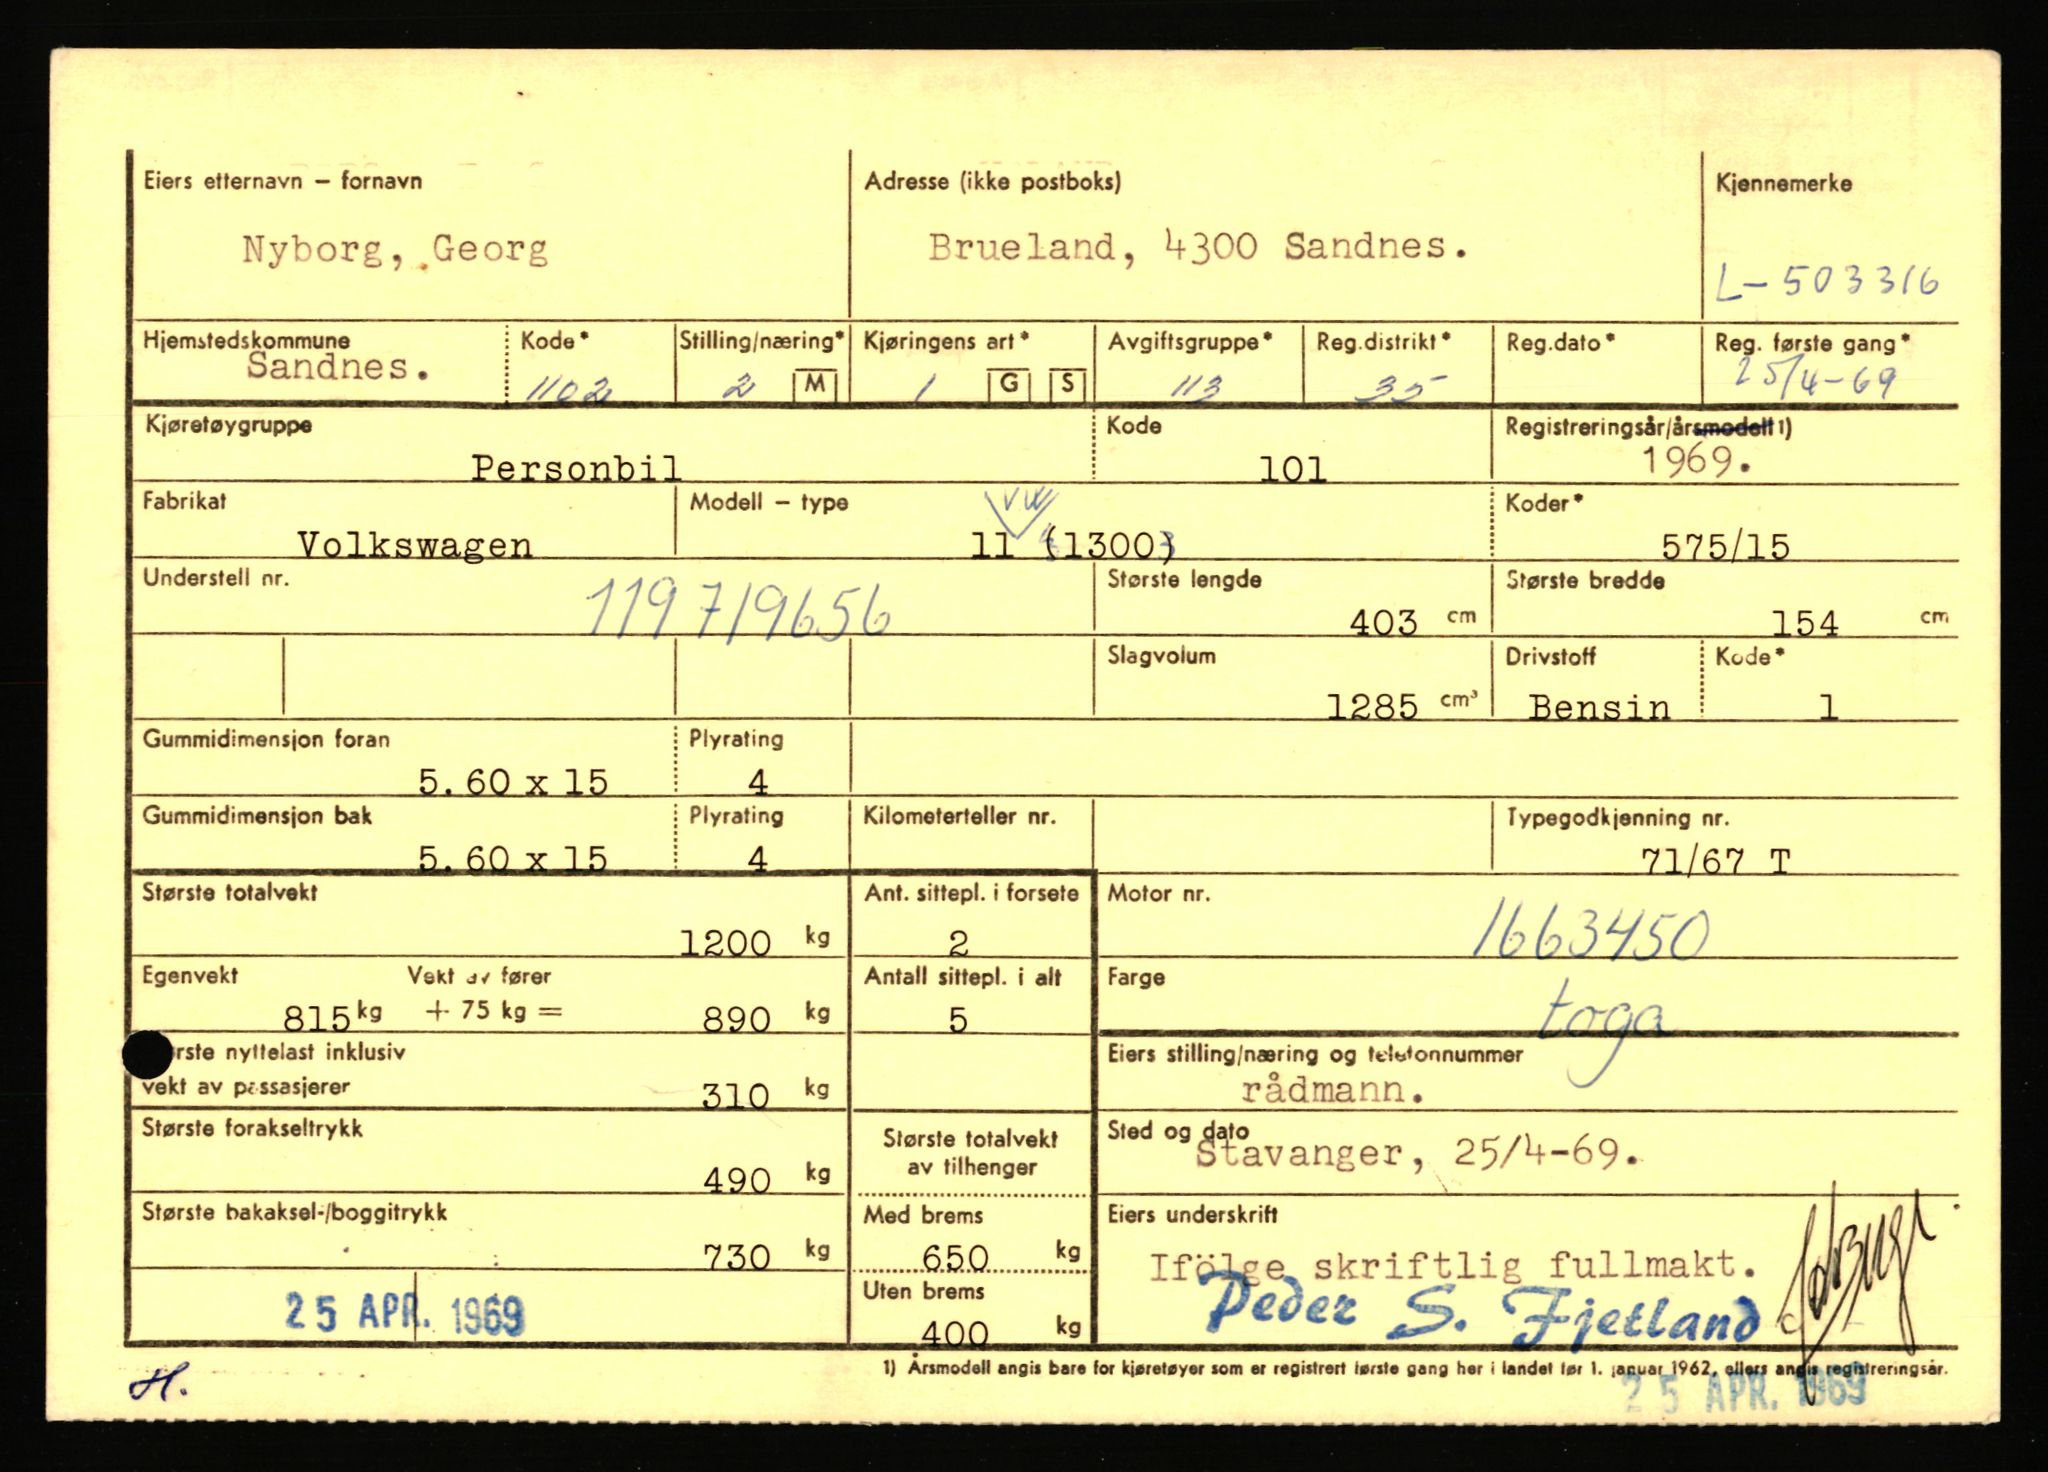 Eiers etternavn – fornavn Adresse (ikke postboks) Kjennemerke
Nyborg, Georg Brueland, 4300 Sandnes.
L-503316
Hjemstedskommune Kode* Stilling/næring* Kjøringens art* Avgiftsgruppe* Reg.distrikt* Reg.dato* Reg. første gang*
Sandnes. 1102 2 M 1 G S 113 35 25/4-69
Kjøretøygruppe Kode Registreringsår/årsmodell 1)
Personbil 101 1969.
Fabrikat Modell – type VW Koder*
Volkswagen 11 (1300) 575/15
Understell nr. Største lengde Største bredde
119719656 403 cm 154 cm
Slagvolum Drivstoff Kode*
1285 cm³ Bensin 1
Gummidimensjon foran Plyrating
5.60 x 15 4
Gummidimensjon bak Plyrating Kilometerteller nr. Typegodkjenning nr.
5.60 x 15 4 71/67 T
Største totalvekt Ant. sittepl. i forsete Motor nr.
1200 kg 2 1663450
Egenvekt Vekt av fører Antall sittepl. i alt Farge
815 kg + 75 kg = 890 kg 5 toga
rste nyttelast inklusiv Eiers stilling/næring og telefonnummer
vekt av passasjerer 310 kg rådmann.
Største forakseltrykk Største totalvekt Sted og dato
490 kg av tilhenger Stavanger, 25/4-69.
Største bakaksel-/boggitrykk Med brems Eiers underskrift
730 kg 650 kg Ifölge skriftlig fullmakt.
25 APR. 1969 Uten brems Peder S. Fjetland
400 kg
1) Årsmodell angis bare for kjøretøyer som er registrert første gang her i landet før 1. januar 1962, ellers angis registreringsår.
H. 25 APR. 1969